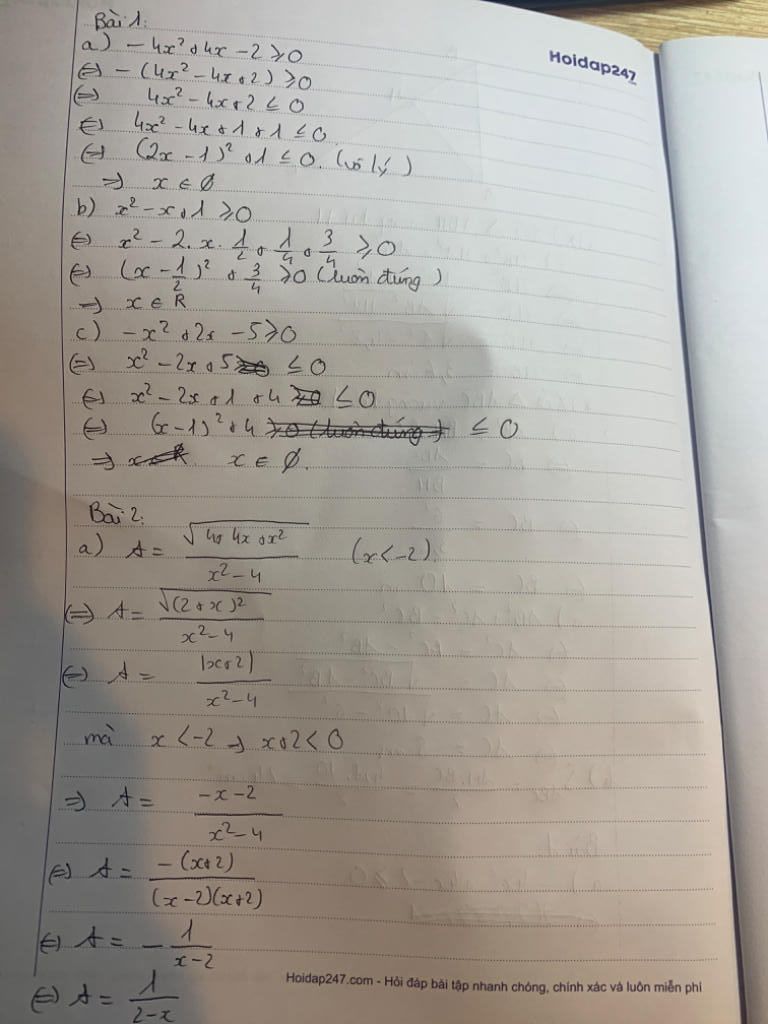 Bài 1:
Hoidap247
a) -4x² + 4x - 2 ≥ 0
⇔ -(4x² - 4x + 2) ≥ 0
⇔ 4x² - 4x + 2 ≤ 0
⇔ 4x² - 4x + 1 + 1 ≤ 0
⇔ (2x - 1)² + 1 ≤ 0. (vô lý)
⇒ x ∈ ∅
b) x² - x + 1 ≥ 0
⇔ x² - 2.x.1/2 + 1/4 + 3/4 ≥ 0
⇔ (x - 1/2)² + 3/4 ≥ 0 (luôn đúng)
⇒ x ∈ R
c) -x² + 2x - 5 ≥ 0
⇔ x² - 2x + 5 ≤ 0
⇔ x² - 2x + 1 + 4 ≤ 0
⇔ (x - 1)² + 4 ≤ 0
⇒ x ∈ ∅.
Bài 2:
a) A = √(4 + 4x + x²) / (x² - 4) (x < -2)
⇔ A = √((2 + x)²) / (x² - 4)
⇔ A = |x + 2| / (x² - 4)
mà x < -2 ⇒ x + 2 < 0
⇒ A = (-x - 2) / (x² - 4)
⇔ A = -(x + 2) / ((x - 2)(x + 2))
⇔ A = - 1 / (x - 2)
⇔ A = 1 / (2 - x)
Hoidap247.com - Hỏi đáp bài tập nhanh chóng, chính xác và luôn miễn phí